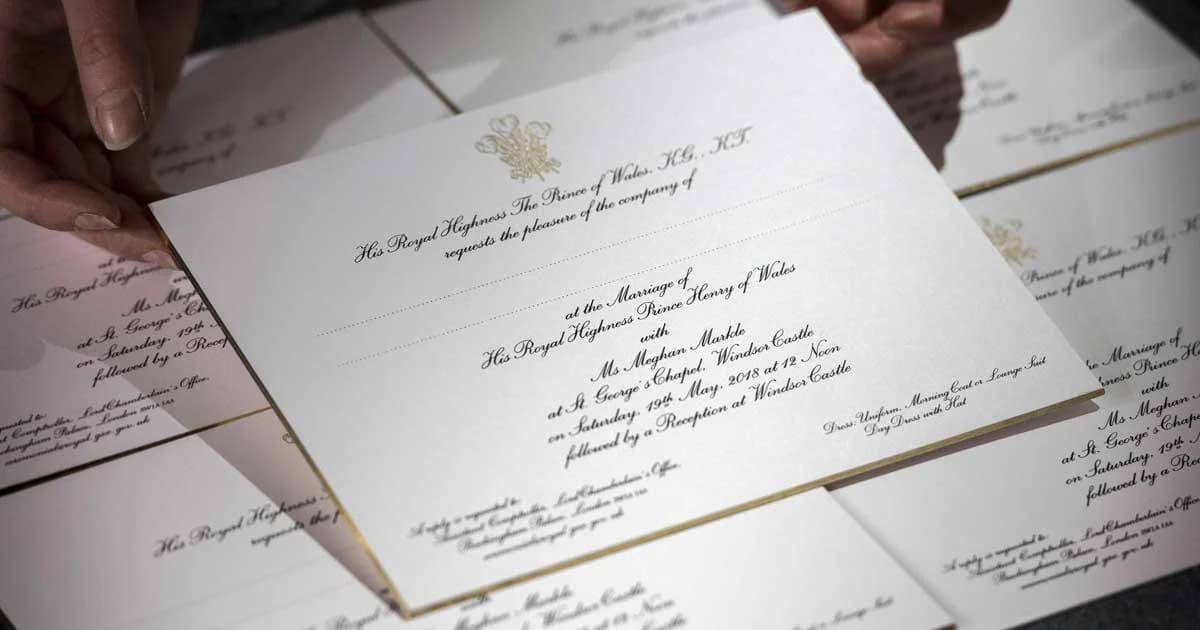 His Royal Highness The Prince of Wales, KG., KT.
requests the pleasure of the company of
at the Marriage of
His Royal Highness Prince Henry of Wales
with
Ms Meghan Markle
at St. George's Chapel, Windsor Castle
on Saturday, 19th May, 2018 at 12 Noon
followed by a Reception at Windsor Castle
Dress: Uniform, Morning Coat or Lounge Suit
Day Dress with Hat
A reply is requested to:
Assistant Comptroller, Lord Chamberlain's Office,
Buckingham Palace, London SW1A 1AA
company of
His Royal Highness
with
Ms Megh
at St. George's Chap
on Saturday, 19th
followed by a Recep
Comptroller, Lord Chamberlain's Office,
Buckingham Palace, London SW1A 1AA
His Royal Highness
requests the p
with
Meghan Markle
Windsor Castle
12 Noon
or Lounge Suit
Prince of Wales, KG., K
of the company of
the Marriage of
Highness Prince H
with
Ms Meghan
at St. George's Chape
on Saturday, 19th
followed by a Recep
A reply is requested to:
Assistant Comptroller, Lord Chamberlain's Office,
Buckingham Palace, London SW1A 1AA